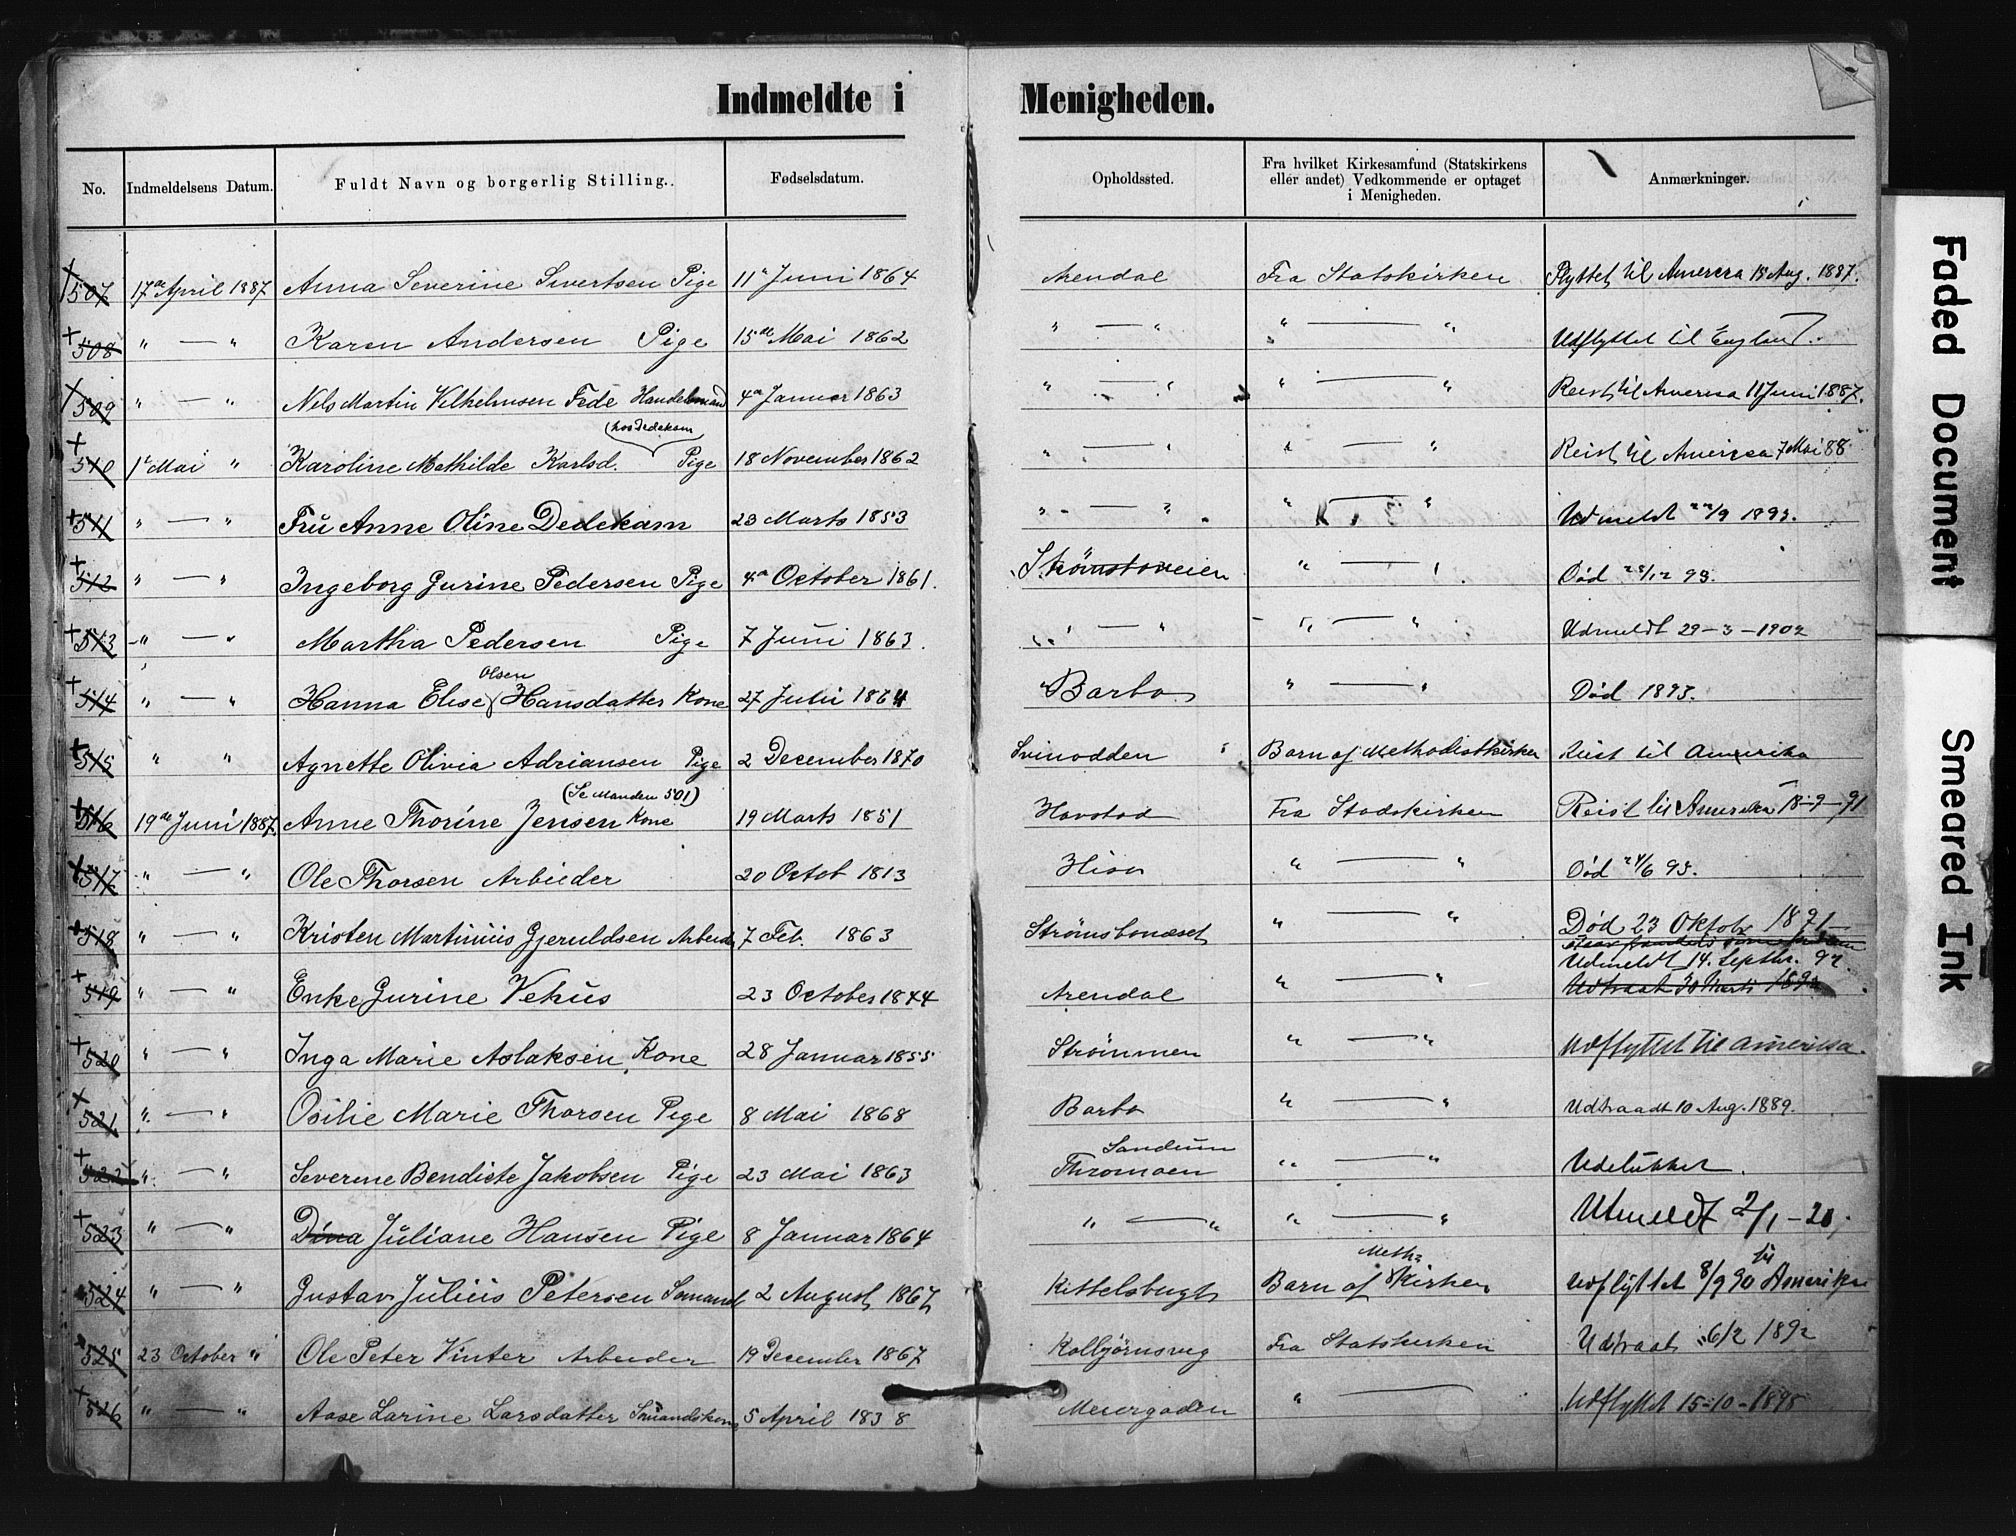 Indmeldte i Menigheden.
No. Indmeldelsens Datum. Fuldt Navn og borgerlig Stilling. Fødselsdatum. Opholdssted. Fra hvilket Kirkesamfund (Statskirkens eller andet) Vedkommende er optaget i Menigheden. Anmærkninger.
507 17de April 1887 Anna Severine Sivertsen Pige 11te Juni 1864 Arendal Fra Statskirken Flyttet til Amerca 15 Aug. 1887.
508 " — " Karen Andersen Pige 15de Mai 1862 " — " " — " Udflyttet til England.
509 " — " Nels Martin Vilhelmsen Fede Handelsmand 4de Januar 1863 " — " " — " Reist til Amerca 11 Juni 1887.
(hos Dedekam
510 1te Mai " Karoline Mathilde Karlsd. Pige 18 November 1862 " — " " — " Reist til Amerca 7 Mai 88
511 " — " Fru Anne Oline Dedekam 23 Marts 1853 " — " " — " Udmeldt 22/9 1893.
512 " — " Ingeborg Gurine Pedersen Pige 4de October 1861. Strømstoveien " — " Død 28/12 93.
513 " — " Martha Pedersen Pige 7 Juni 1863. " — " " — " Udmeldt 29-3-1902
Olsen
514 " — " Hanna Elise Hansdatter Kone 27 Juli 1864 Barbo " — " Død 1893.
515 " " Agnette Olivia Adriansen Pige 2 December 1870 Svinodden Barn af Methodistkirken Reist til Amerika
(Se Manden 501)
516 19de Juni 1887. Anne Thorine Jensen Kone 19 Marts 1851 Havstad Fra Stadskirken Reist til Amerika 18-9-91
517 " — " Ole Thorsen Arbieder 20 Octob 1813 Hisø " — " Død 24/6 93.
518 " — " Kristen Martinius Gjeruldsen Arbeid 7 Feb. 1863 Strømsbouæset " — " Død 23 Oktobr 1891
Udmeldt 14. Septbr. 92.
519 " — " Enke Gurine Vehus 23 October 1844 Arendal " — " Udtraat 30 Marts 1892
520 " — " Inga Marie Aslaksen, Kone 28 Januar 1855 Strømmen " — " Udflyttet til Amerika.
521 " — " Osilie Marie Thorsen Pige 8 Mai 1868 Barbo " — " Udtraadt 10 Aug. 1889.
Sandum
522 " — " Severine Bendicte Jakobsen Pige 23 Mai 1863 Thromøen " — " Udelukket.
523 " — " Dina Juliane Hansen Pige 8 Januar 1864 " — " " — " Utmeldt 2/1-20,
Meth: til
524 " — " Gustav Julius Petersen Sømand 2 August 1867 Kittelsbugt Barn af Kirken Udflyttet 8/9 90 Amerika
525 23 October " Ole Peter Vinter Arbeider 19 December 1867 Kolbjørnsvig Fra Statskirken Udtraat 6/2 1892
526 " — " Aase Larine Larsdatter Sømandskone 5 April 1838 Meiergaden " — Udflyttet 15-10-1895
Faded Document
Smeared Ink